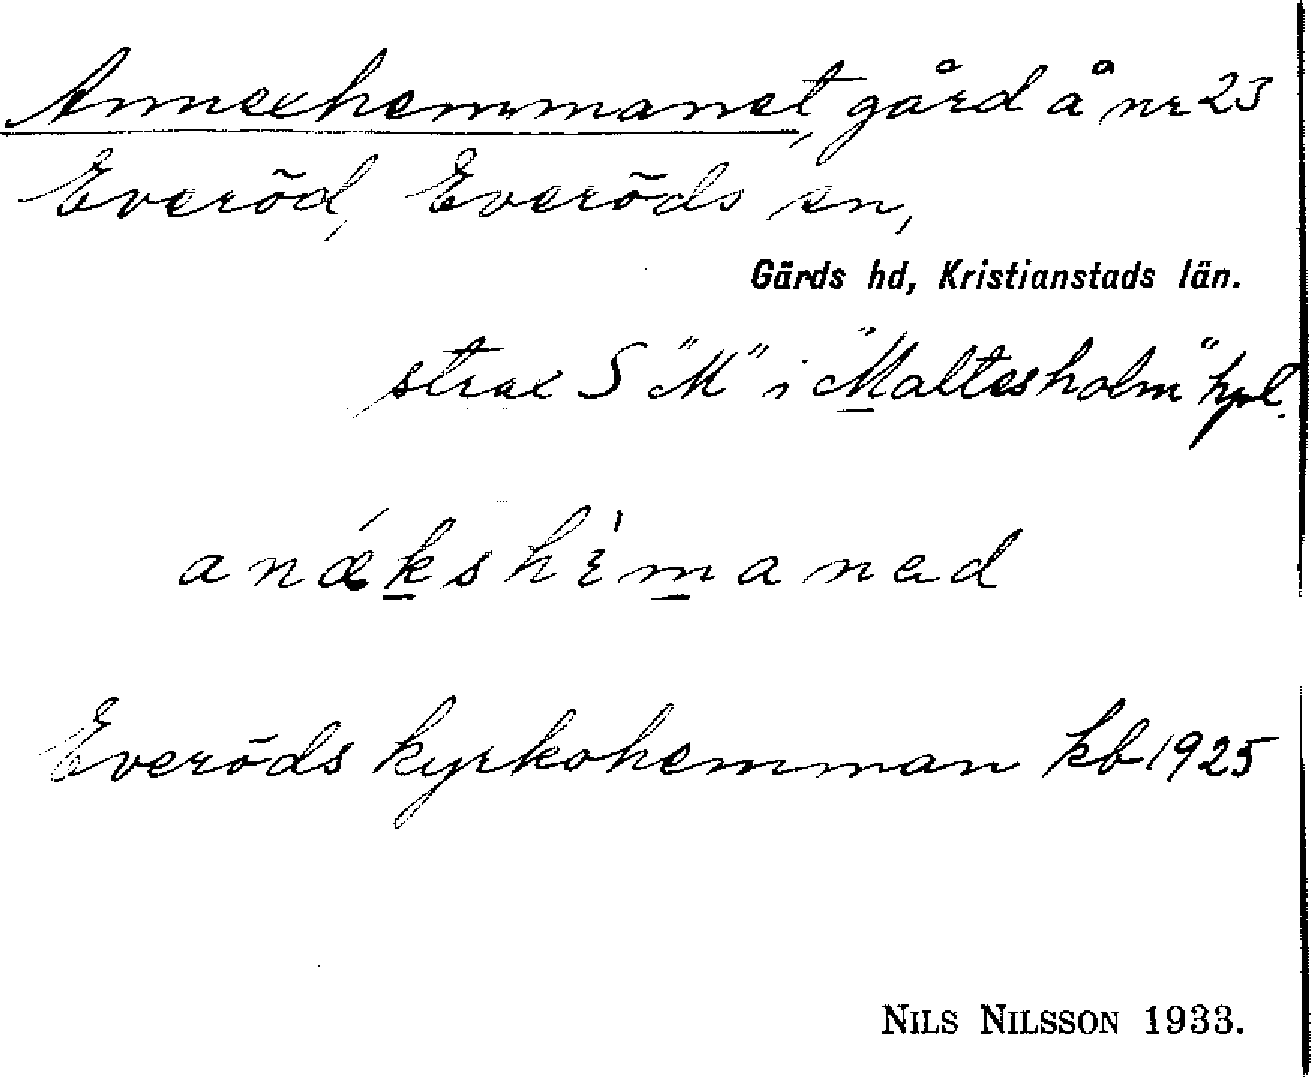 Annexhemmanet, gård å nr 23
Everöd, Everöds sn,
Gärds hd, Kristianstads län.
strax S "M" i "Maltesholm" hpl.
anǽkshèmanad
Everöds kyrkohemman kb 1925
NILS NILSSON 1933.